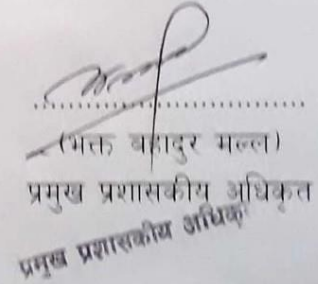 (भक्त बहादुर मल्ल)
प्रमुख प्रशासकीय अधिकृत
प्रमुख प्रशासकीय अधिकृ